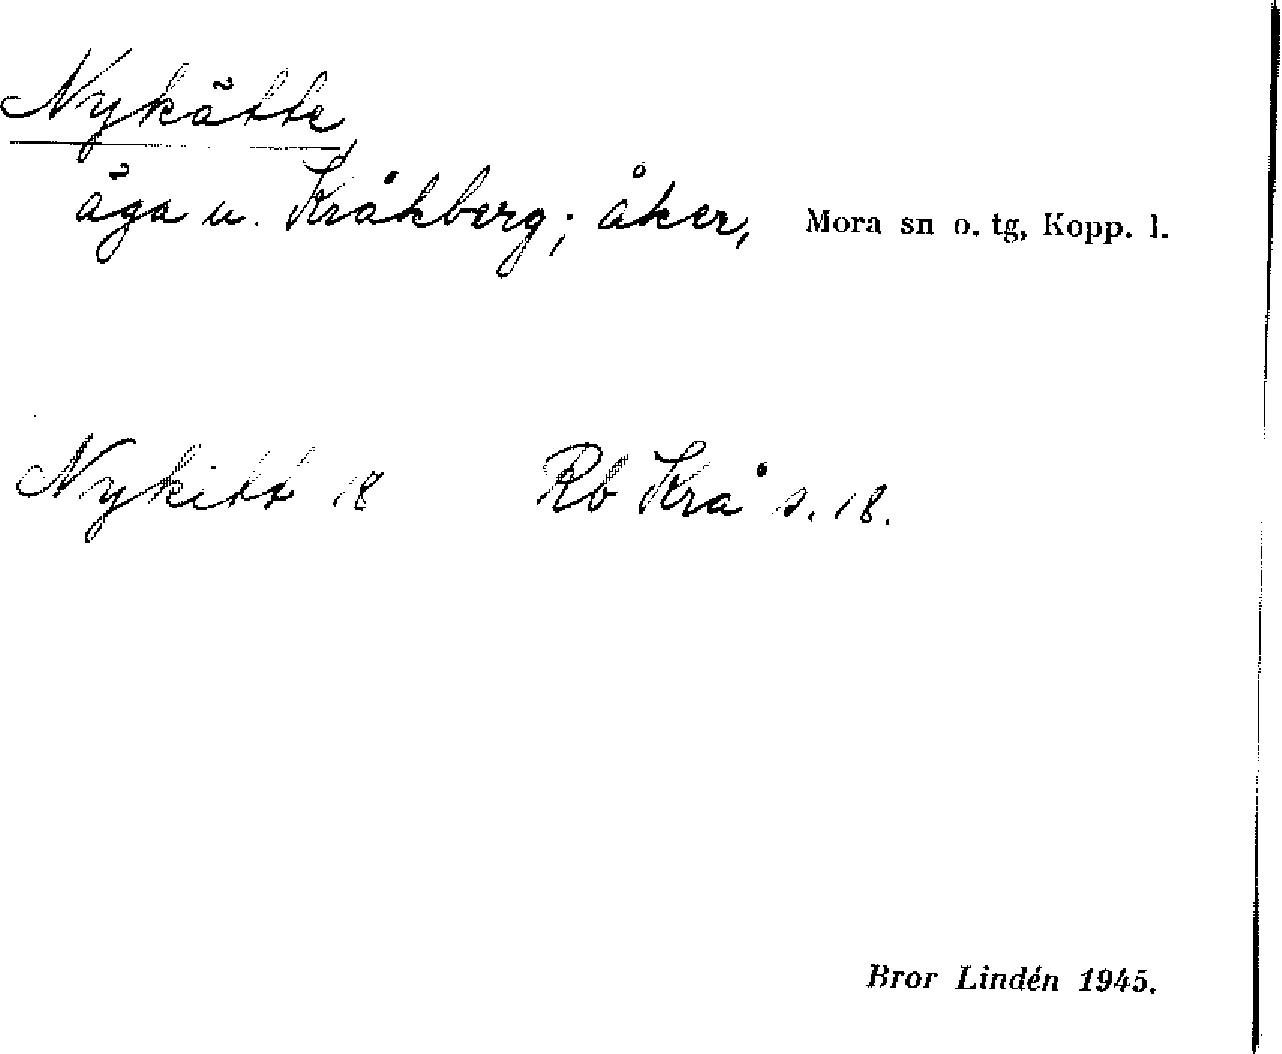 Nykätte,
äga u. Kråkberg; åker, Mora sn o. tg, Kopp. l.
Nykitt 18 Rb Krå s. 18.
Bror Lindén 1945.